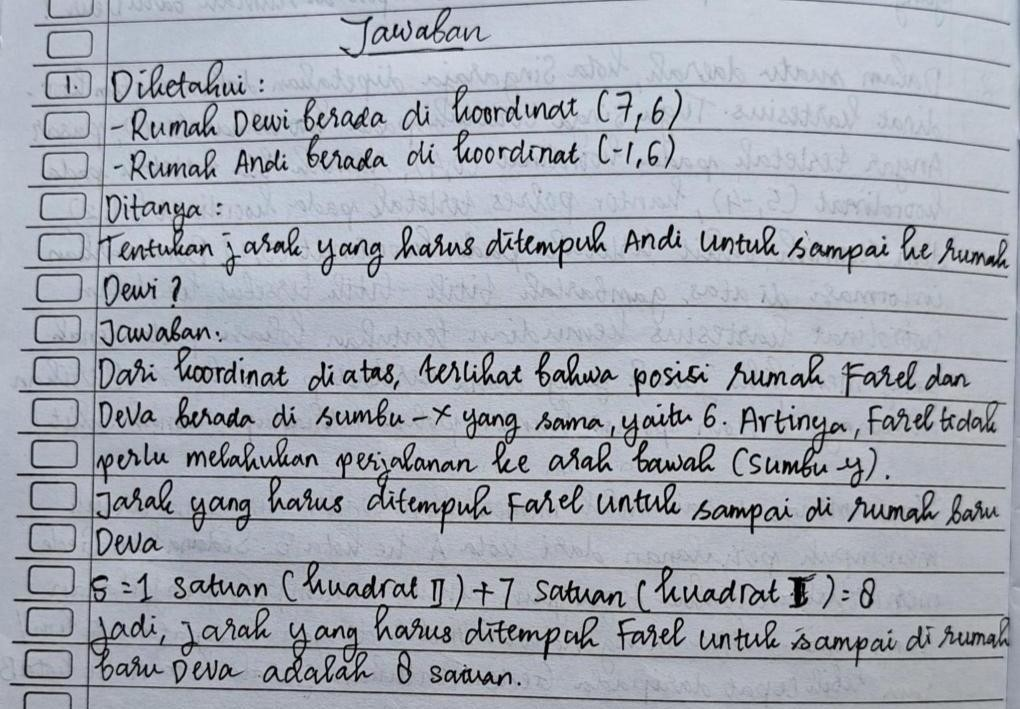 Jawaban
1. Diketahui :
- Rumah Dewi berada di koordinat (7,6)
- Rumah Andi berada di koordinat (-1,6)
Ditanya :
Tentukan jarak yang harus ditempuh Andi untuk sampai ke rumah
Dewi ?
Jawaban:
Dari koordinat di atas, terlihat bahwa posisi rumah Farel dan
Deva berada di sumbu -X yang sama, yaitu 6. Artinya, Farel tidak
perlu melakukan perjalanan ke arah bawah (sumbu-y).
Jarak yang harus ditempuh Farel untuk sampai di rumah baru
Deva
S = 1 satuan (kuadrat II) + 7 satuan (kuadrat I) = 8
Jadi, jarak yang harus ditempuh Farel untuk sampai di rumah
baru Deva adalah 8 satuan.